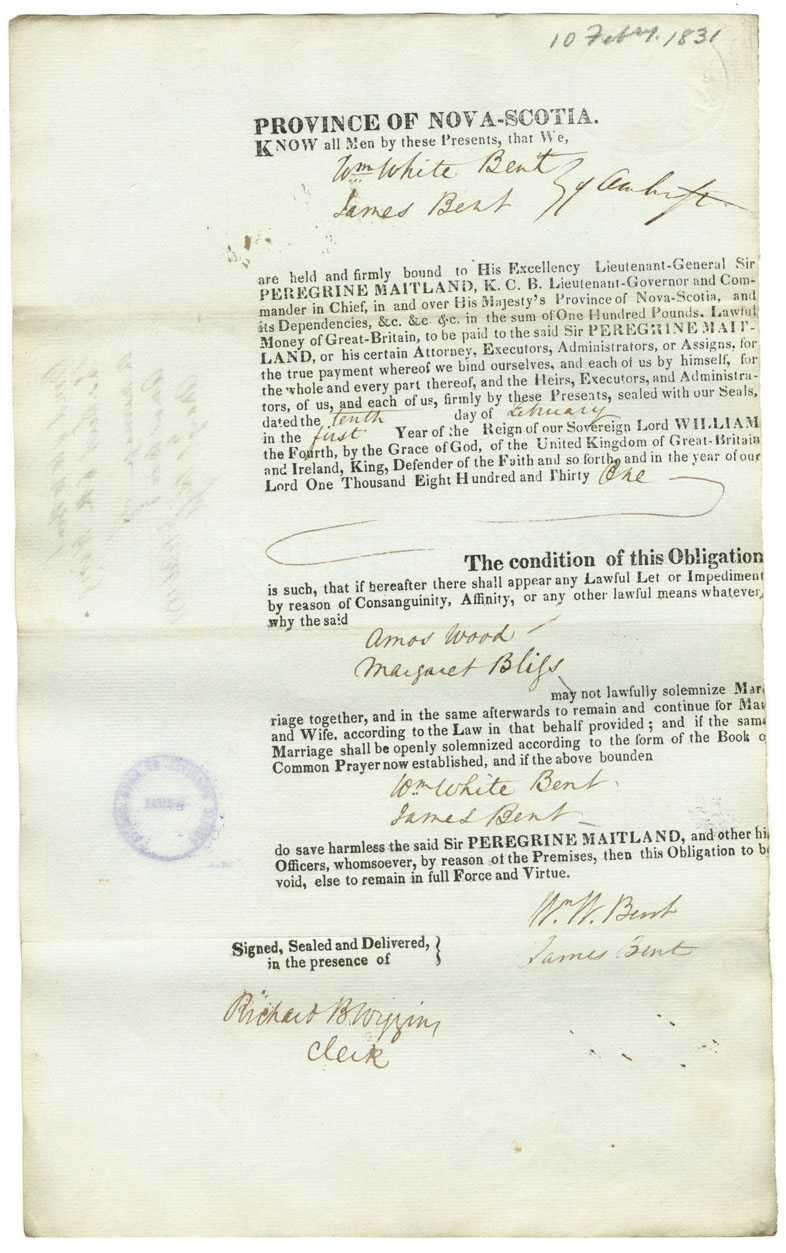 10 Feby. 1831
PROVINCE OF NOVA-SCOTIA.
KNOW all Men by these Presents, that We,
Wm White Bent
James Bent } of Amherst
are held and firmly bound to His Excellency Lieutenant-General Sir
PEREGRINE MAITLAND, K. C. B. Lieutenant-Governor and Com-
mander in Chief, in and over His Majesty's Province of Nova-Scotia, and
its Dependencies, &c. &c &c. in the sum of One Hundred Pounds, Lawful
Money of Great-Britain, to be paid to the said Sir PEREGRINE MAIT-
LAND, or his certain Attorney, Executors, Administrators, or Assigns, for
the true payment whereof we bind ourselves, and each of us by himself, for
the whole and every part thereof, and the Heirs, Executors, and Administra-
tors, of us, and each of us, firmly by these Presents, sealed with our Seals,
dated the tenth day of February
in the first Year of the Reign of our Sovereign Lord WILLIAM
the Fourth, by the Grace of God, of the United Kingdom of Great-Britain
and Ireland, King, Defender of the Faith and so forth, and in the year of our
Lord One Thousand Eight Hundred and Thirty One
The condition of this Obligation
is such, that if hereafter there shall appear any Lawful Let or Impediment
by reason of Consanguinity, Affinity, or any other lawful means whatever,
why the said
Amos Wood
Margaret Bliss
may not lawfully solemnize Mar-
riage together, and in the same afterwards to remain and continue for Man
and Wife, according to the Law in that behalf provided; and if the same
Marriage shall be openly solemnized according to the form of the Book o
Common Prayer now established, and if the above bounden
Wm White Bent
James Bent
do save harmless the said Sir PEREGRINE MAITLAND, and other hi
Officers, whomsoever, by reason of the Premises, then this Obligation to b
void, else to remain in full Force and Virtue.
Wm. W. Bent
James Bent
Signed, Sealed and Delivered, }
in the presence of
Richard B Wiggins
Clerk